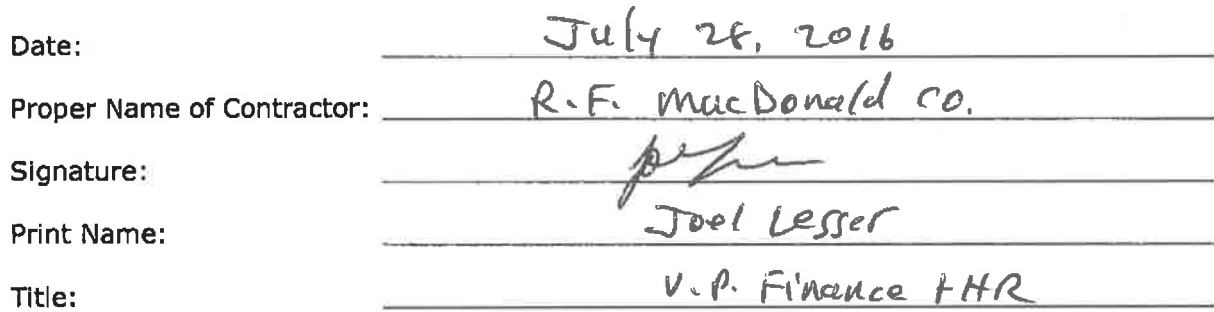 Date: July 28, 2016
Proper Name of Contractor: R.F. MacDonald CO.
Signature:
Print Name: Joel Lesser
Title: V.P. Finance + HR